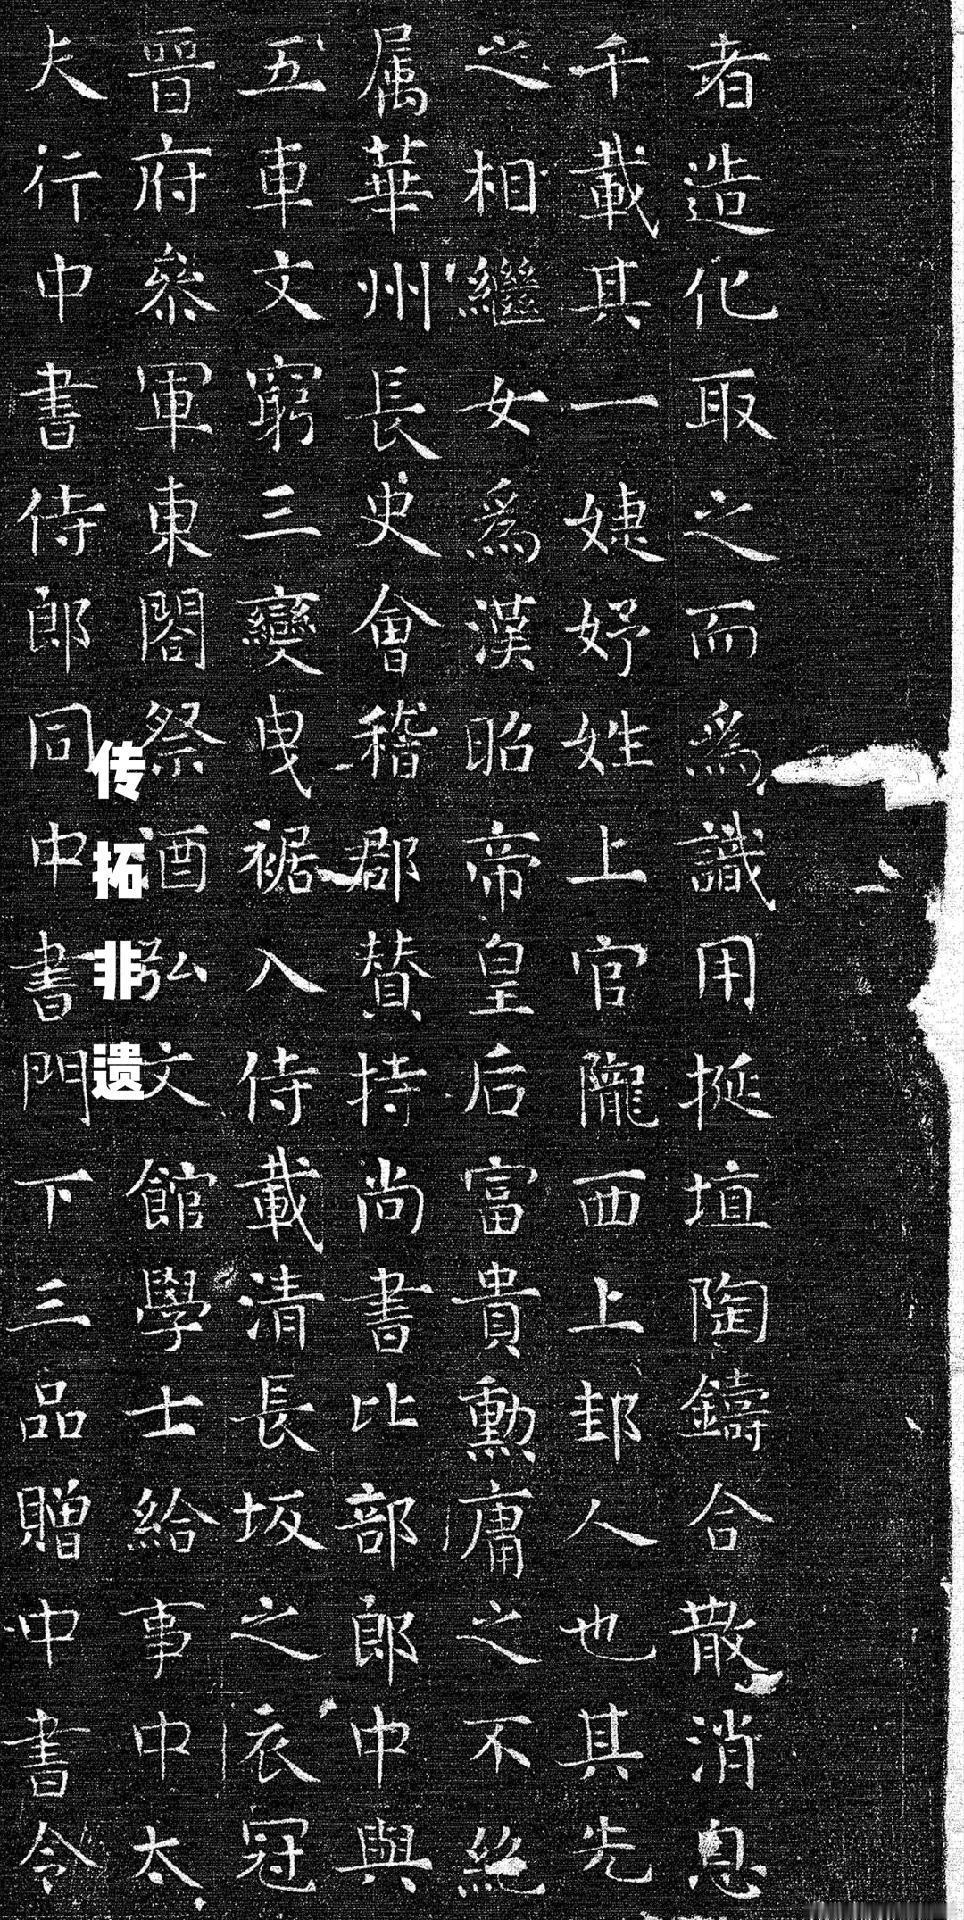 者造化取之而爲識用挻埴陶鑄合散消息
千載其一婕妤姓上官隴西上邽人也其先
之相繼女爲漢昭帝皇后富貴勳庸之不絕
属華州長史會稽郡贊持尚書比部郎中與
五車文窮三變曳裾入侍載清長坂之衣冠
晉府參軍東閤祭酒弘文館學士給事中太
大行中書侍郎同中書門下三品贈中書令
传拓非遗